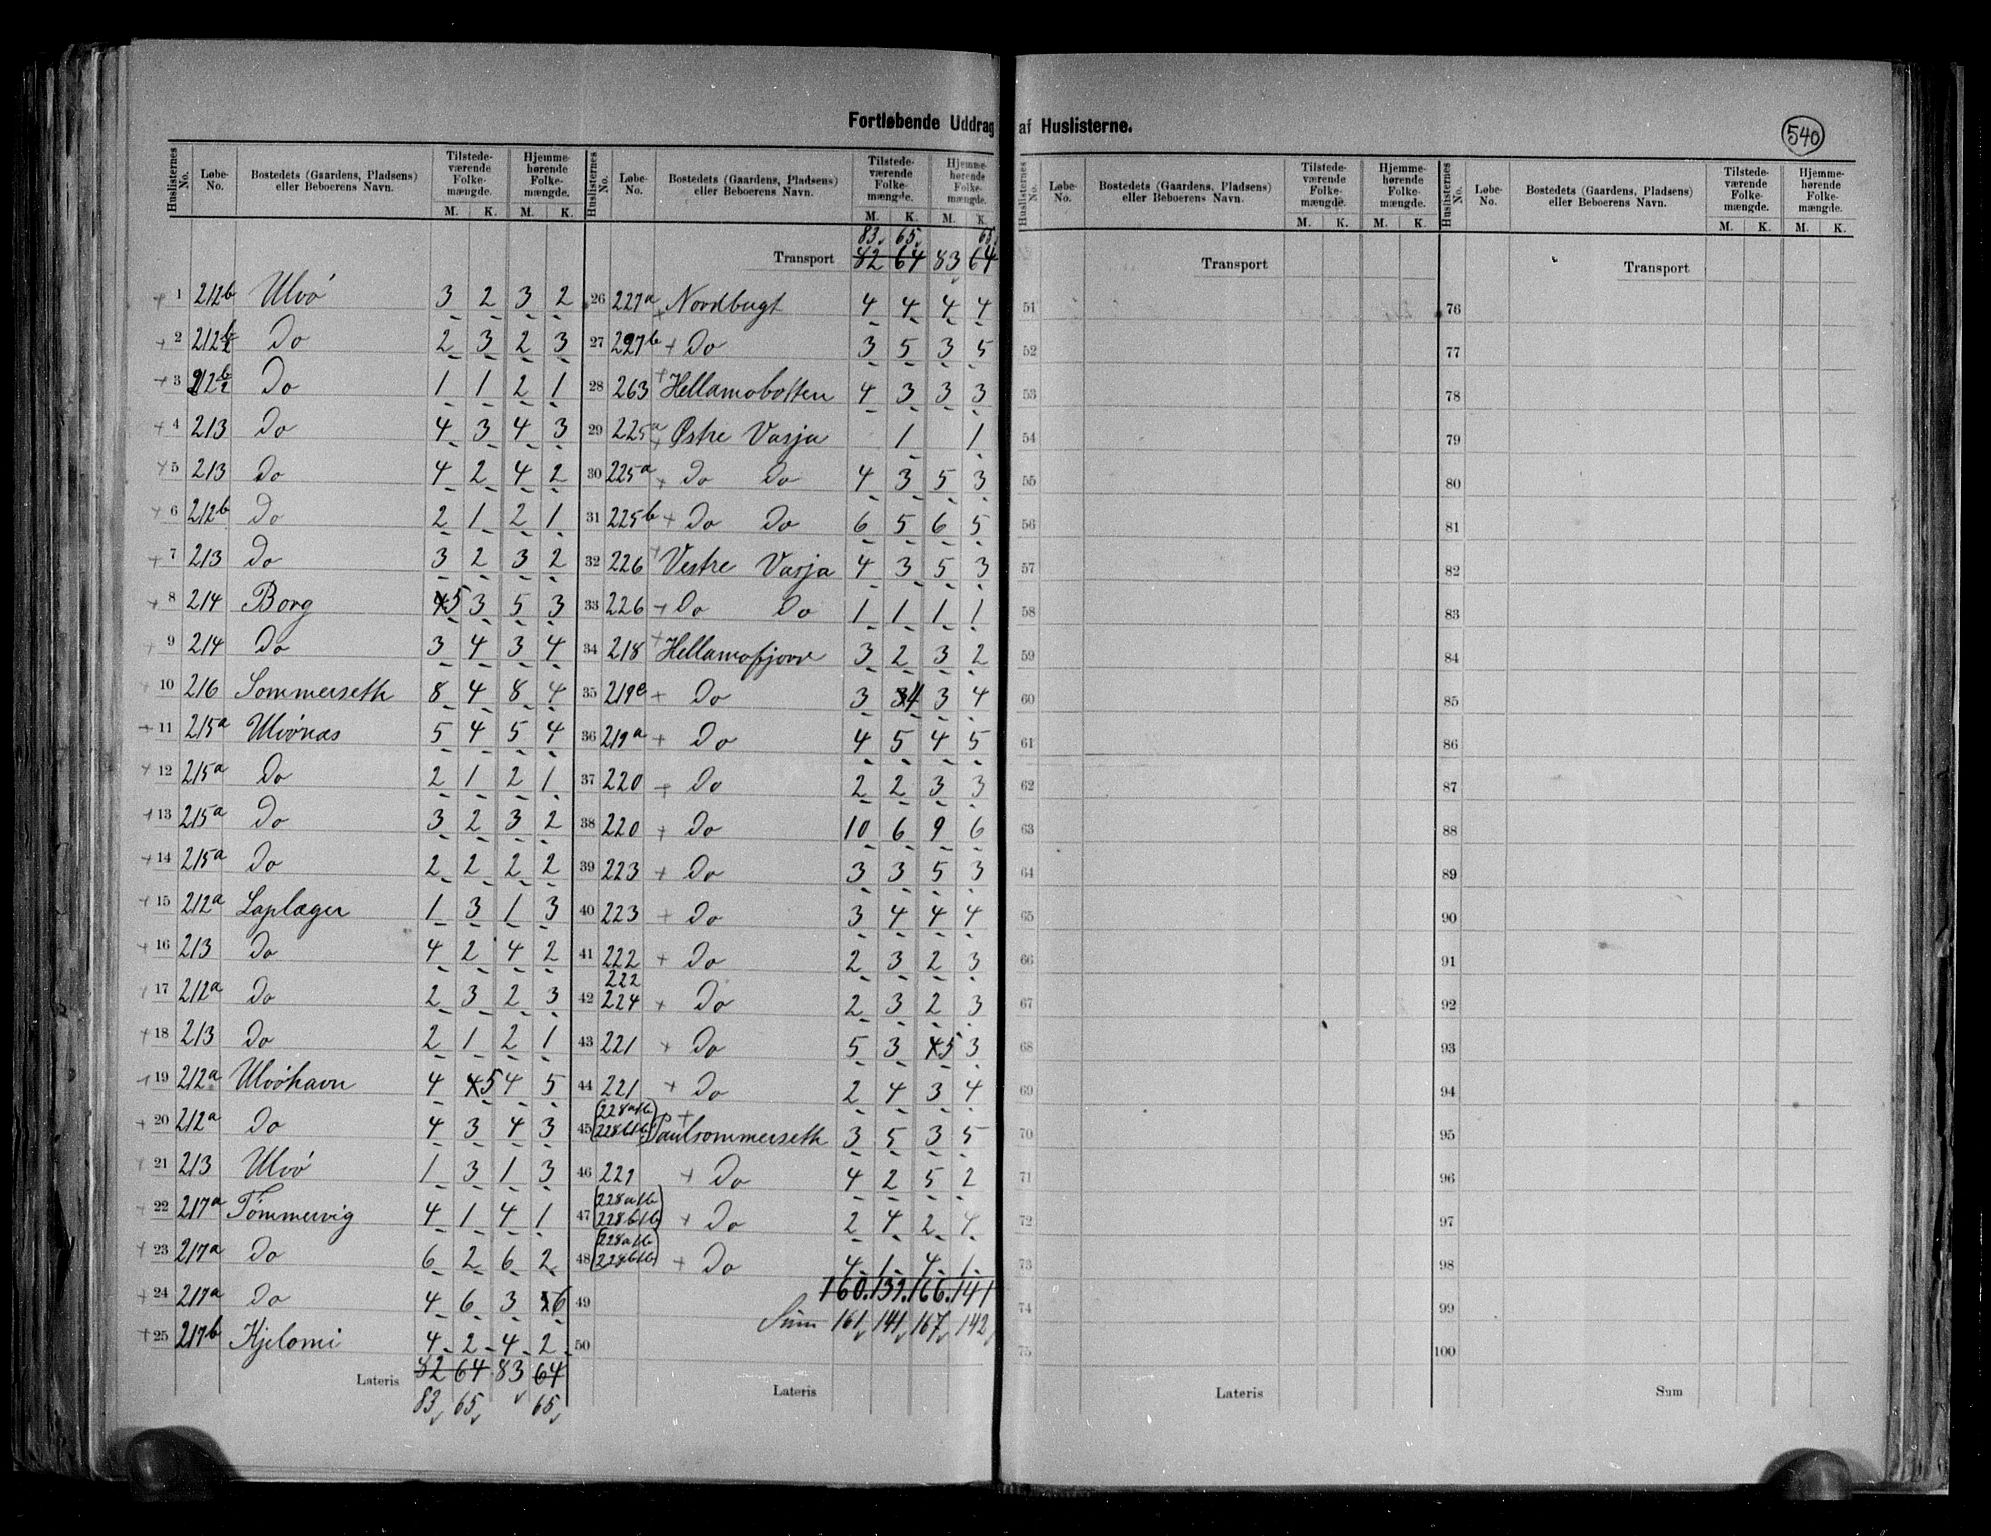 Fortløbende Uddrag af Huslisterne.
540
Huslisternes No. Løbe-No. Bostedets (Gaardens, Pladsens) eller Beboerens Navn. Tilstede-værende Folke-mængde. M. K. Hjemme-hørende Folke-mængde. M. K.
1 212b Ulvö 3 2 3 2
2 212b/2 Do 2 3 2 3
3 212b/2 Do 1 1 2 1
4 213 Do 4 3 4 3
5 213 Do 4 2 4 2
6 212b Do 2 1 2 1
7 213 Do 3 2 3 2
8 214 Borg 4 5 3 5 3
9 214 Do 3 4 3 4
10 216 Sommerseth 8 4 8 4
11 215a Ulvönæs 5 4 5 4
12 215a Do 2 1 2 1
13 215a Do 3 2 3 2
14 215a Do 2 2 2 2
15 212a Laplæger 1 3 1 3
16 213 Do 4 2 4 2
17 212a Do 2 3 2 3
18 213 Do 2 1 2 1
19 212a Ulvöhavn 4 4 5 4 5
20 212a Do 4 3 4 3
21 213 Ulvö 1 3 1 3
22 217a Tömmervig 4 1 4 1
23 217a Do 6 2 6 2
24 217a Do 4 6 3 6
25 217b Kjelomi 4 2 4 2
82 64 83 64
Lateris
83 65 65
Huslisternes No. Løbe-No. Bostedets (Gaardens, Pladsens) eller Beboerens Navn. Tilstede-værende Folke-mængde. M. K. Hjemme-hørende Folke-mængde. M. K.
83 65 65
Transport 82 64 83 64
26 227a + Nordbugt 4 4 4 4
27 227b + Do 3 5 3 5
28 263 + Hellamobotten 4 3 3 3
29 225a + Østre Vasja 1 1
30 225a + Do Do 4 3 5 3
31 225b + Do Do 6 5 6 5
32 226 + Vestre Vasja 4 3 5 3
33 226 + Do Do 1 1 1 1
34 218 + Hellamofjord 3 2 3 2
35 219e + Do 3 3 4 3 4
36 219a + Do 4 5 4 5
37 220 + Do 2 2 3 3
38 220 + Do 10 6 9 6
39 223 + Do 3 3 5 3
40 223 + Do 3 4 4 4
41 222 + Do 2 3 2 3
222
42 224 + Do 2 3 2 3
43 221 + Do 5 3 4 5 3
44 221 + Do 2 4 3 4
(228a/b
45 228b/b) + Paulsommerseth 3 5 3 5
46 227 + Do 4 2 5 2
(228a/b
47 228b/b) + Do 2 4 2 4
(228a/b
48 228b/b) + Do 4 1 4 1
49 160. 139. 166. 141
Sum 161 141 167 142
50
Lateris
Huslisternes No. Løbe-No. Bostedets (Gaardens, Pladsens) eller Beboerens Navn. Tilstede-værende Folke-mængde. M. K. Hjemme-hørende Folke-mængde. M. K.
Transport
51
52
53
54
55
56
57
58
59
60
61
62
63
64
65
66
67
68
69
70
71
72
73
74
75
Lateris
Huslisternes No. Løbe-No. Bostedets (Gaardens, Pladsens) eller Beboerens Navn. Tilstede-værende Folke-mængde. M. K. Hjemme-hørende Folke-mængde. M. K.
Transport
76
77
78
79
80
81
82
83
84
85
86
87
88
89
90
91
92
93
94
95
96
97
98
99
100
Sum